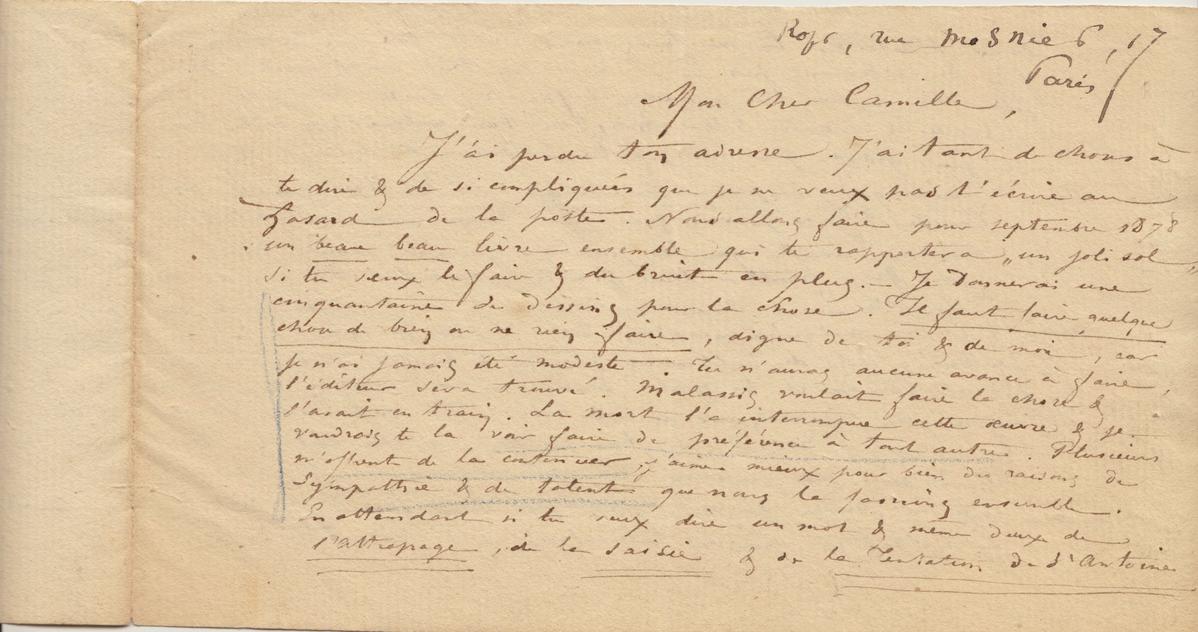 Rops, rue Mosnier, 17
Paris
Mon Cher Camille,
J'ai perdu ton adresse. J'ai tant de choses à
te dire & de si compliquées que je ne veux pas l'écrire au
hasard de la poste. Nous allons faire pour septembre 1878
un beau beau livre ensemble qui te rapportera „un joli sol„
si tu veux le faire & du bruit en plus. – Je donnerai une
cinquantaine de dessins pour la chose. Il faut faire quelque
chose de bien ou ne rien faire, digne de toi & de moi, car
je n'ai jamais été modeste. Tu n'auras aucune avance à faire,
l'éditeur sera trouvé. Malassis voulait faire la chose &
l'avait en train. La mort l'a interrompue cette œuvre & je
voudrais te la voir faire de préférence à tout autre. Plusieurs
m'offrent de la continuer, j'aime mieux pour bien des raisons de
Sympathie & de talent que nous la fassions ensemble.
En attendant si tu veux dire un mot & même deux de
l'attrapage, de la saisie & de la Tentation de St Antoine